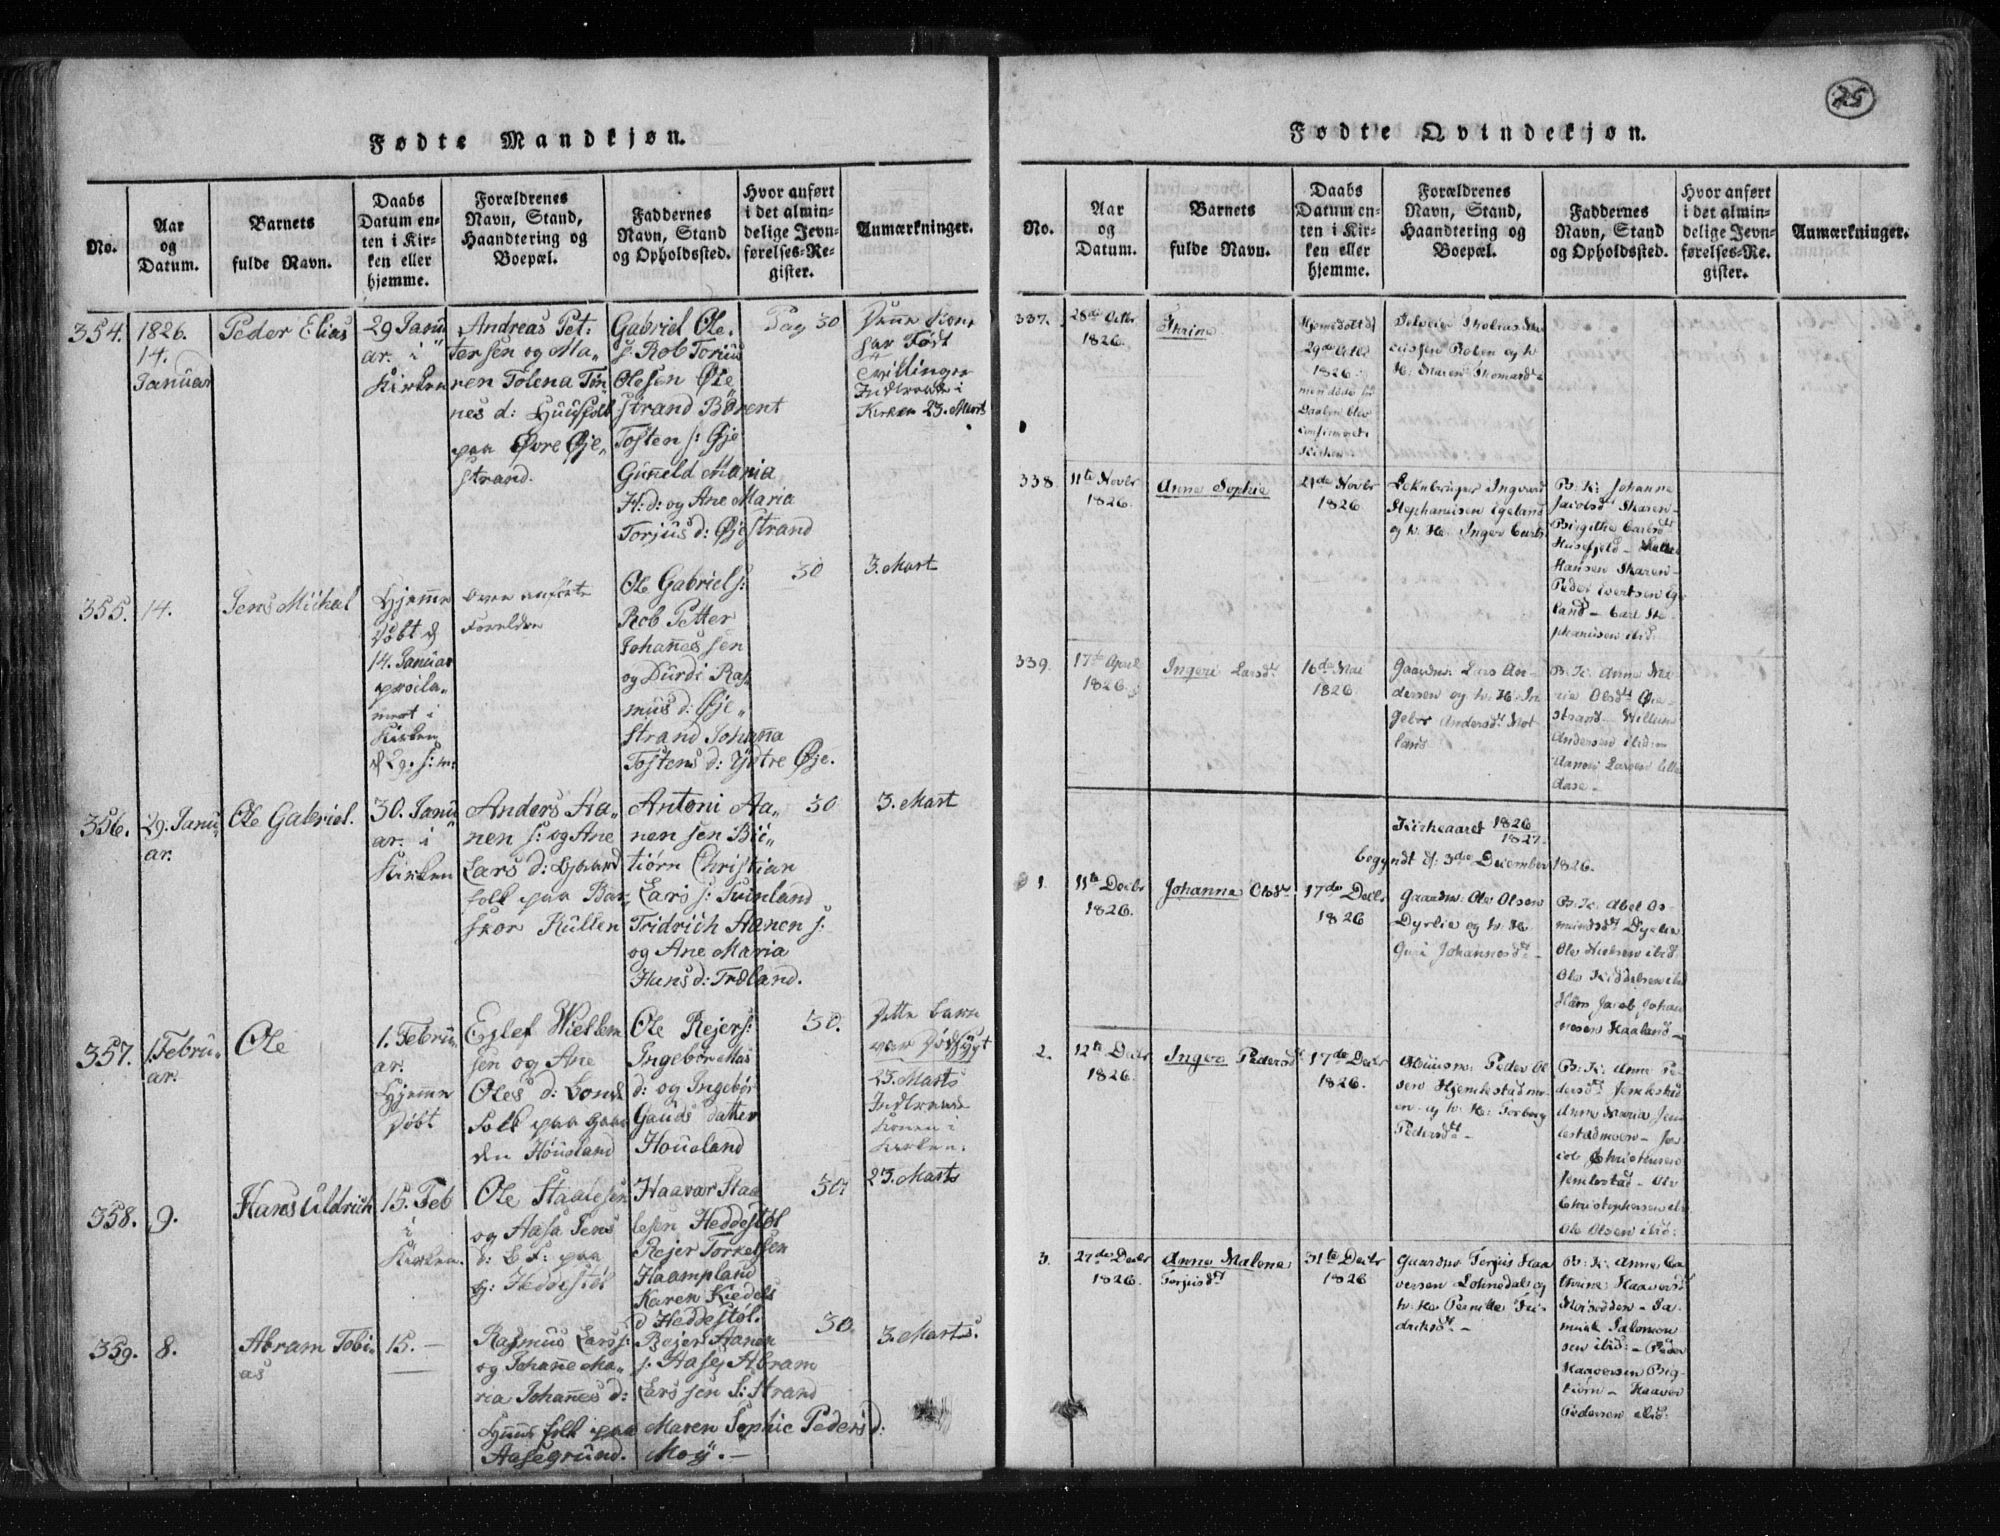 75
Fødte Mandkjøn.
No.
Aar
og
Datum.
Barnets
fulde Navn.
Daabs
Datum en-
ten i Kir-
ken eller
hjemme.
Forældrenes
Navn, Stand,
Haandtering og
Boepæl.
Faddernes
Navn, Stand
og Opholdssted.
Hvor anført
i det almin-
delige Jevn-
førelses-Re-
gister.
Anmærkninger.
354.
1826.
14.
Januar
Peder Elias
29 Janu
ar. i
Kirken
Andreas Pet:
tersen og Ma„
ren Tolena Tøn
nes d: Huusfolk
paa Øvre Øje„
strand.
Gabriel Ole.
s: Rob Torius
Olesen Øie
strand Børent
Tosten s: Øje
Guneld Maria
H: d: og Ane Maria
Torjus d: Øjestrand
Pag 30
Denne Kone
har Født
Tvillinger
Indlraade i
Kirken 23. Marts
355.
14.
Jens Michal
Hjemme
Døbt d
14. Januar
proila„
mert i
Kirken
d 29. s: m:
Oven anførte
Foreldre
Ole Gabriel s:
Rob Petter
Johannes sen
og Durdi Ras
mus d: Øje„
strand Johanna
Tostens d: Ydtre Øje.
30
3. Mart
356.
29. Janu„
ar.
Ole Gabriel.
30. Janu
ar. i
Kirken
Anders Aa„
nen s: og Ane
Lars d:
folk paa Bar„
skor Kullen
Antoni Aa„
nen sen Bie„
tiørn Christian
Lars s: Tvinland
Fridrich Aanen s:
og Ane Maria
Hans d: Træland.
30
3. Mart
357.
1. Febru„
ar.
Ole
1. Febru„
ar.
Hjemme
Døbt
Ejlef Wiellem
sen og Ane
Oles d: Bonde
Folk paa Gaar
den Høusland
Ole Rejers:
Ingebor Mas
d: og Ingebør
Gauds datter
Housland
30.
Dette barn
var Dødsygt
23. Marts
Indlraade
Konen i
Kirken.
358.
9.
Hans Uldrich
15. Feb
i
Kirken.
Ole Staalesen
og Aasa Jens
d: B F: paa
G: Heddestøl
Haavar Staa
lesen Heddestøl
Rejer Torkelsen
Haampland
Karen Kiedels
d Heddestøl.
30
23. Marts
359.
8.
Abram Tobi„
as
15. —
Rasmus Lars s:
og Johane Ma„
ria Johannes d:
Huus folk paa
Aasegrund.
Rejer Aanen
s: Aasej Abram
Lars sen S: Strand
Maren Sophie Peders d:
Moy. —
30
3. Marts.
Fødte Qvindekjøn.
No.
Aar
og
Datum.
Barnets
fulde Navn.
Daabs
Datum en-
ten i Kir-
ken eller
hjemme.
Forældrenes
Navn, Stand,
Haandtering og
Boepæl.
Faddernes
Navn, Stand
og Opholdssted.
Hvor anført
i det almin-
delige Jevn-
førelses-Re-
gister.
Anmærkninger.
337.
28de Octbr
1826.
Thrine
Hjemedøbt d
29de Octbr
1826
men døde før
Daaben blev
confirmeret i
Kirken
og h:
K: Maren Thomasd
338.
11te Novbr
1826.
Anne Sophie
21de Novbr
1826
Leknbruger Ingvard
Stephanisen Egeland
og h. K. Inger Carls
B: K: Johanne
Jacobsd Skaren-
Birgithe Carlsd
Husefjeld-
Hansen Skaren-
Peder Evertsen Ege
land- Carl Ste
phanisen ibid.
339.
17de April
1826.
Ingeri Larsd
16de Mai
1826
Gaardm. Lars An-
dersen og h. K. In
gebor Andersd Hot
land
B. K. Anne Ma-
rie Olsd Øie-
strand Willum
Andersen ibid:
Aanon Larsen Lille
Aase.
Kirkeaaret 1826
1827.
begyndt d. 3de December 1826.
1.
11te Decbr
1826.
Johanne Olsd
17de Decbr
1826
Gaardm. Ole Olsen
Dyrlie og h. K
Guri Johannesd-
B: K: Abel Os-
mundsd Dyrlie
Ole Nielsen ibid
Ole Kiddelsen ibid
Hans Jacob Johan
nesen Haaland-
2.
12te Decbr
1826.
Inger Pedersd
17de Decbr
1826.
Huusm: Peder Ol
sen Hjemlestadmo-
en og h. K: Torborg
Pedersd-
B: K: Anne Pe-
dersd Jemlestad
Anne Maria Jem
lestadmoen- Ja-
cob Christensen
Jemlestad- Ole
Christophersen ib
Ole Olsen ibid:
3.
27de Decbr
1826.
Anne Malene
Terjusd
31te Decbr
1826
Gaardm Terjus Haa
versen Lohnedal og
h. K: Pernille Fri-
drichsd-
B: K: Anne Ca-
thrine Haaversd
Moisedden- Ja-
mich Salomon
sen ibid:- Peder
Haaversen Big-
tiørn- Haaver
Pedersen ibid: